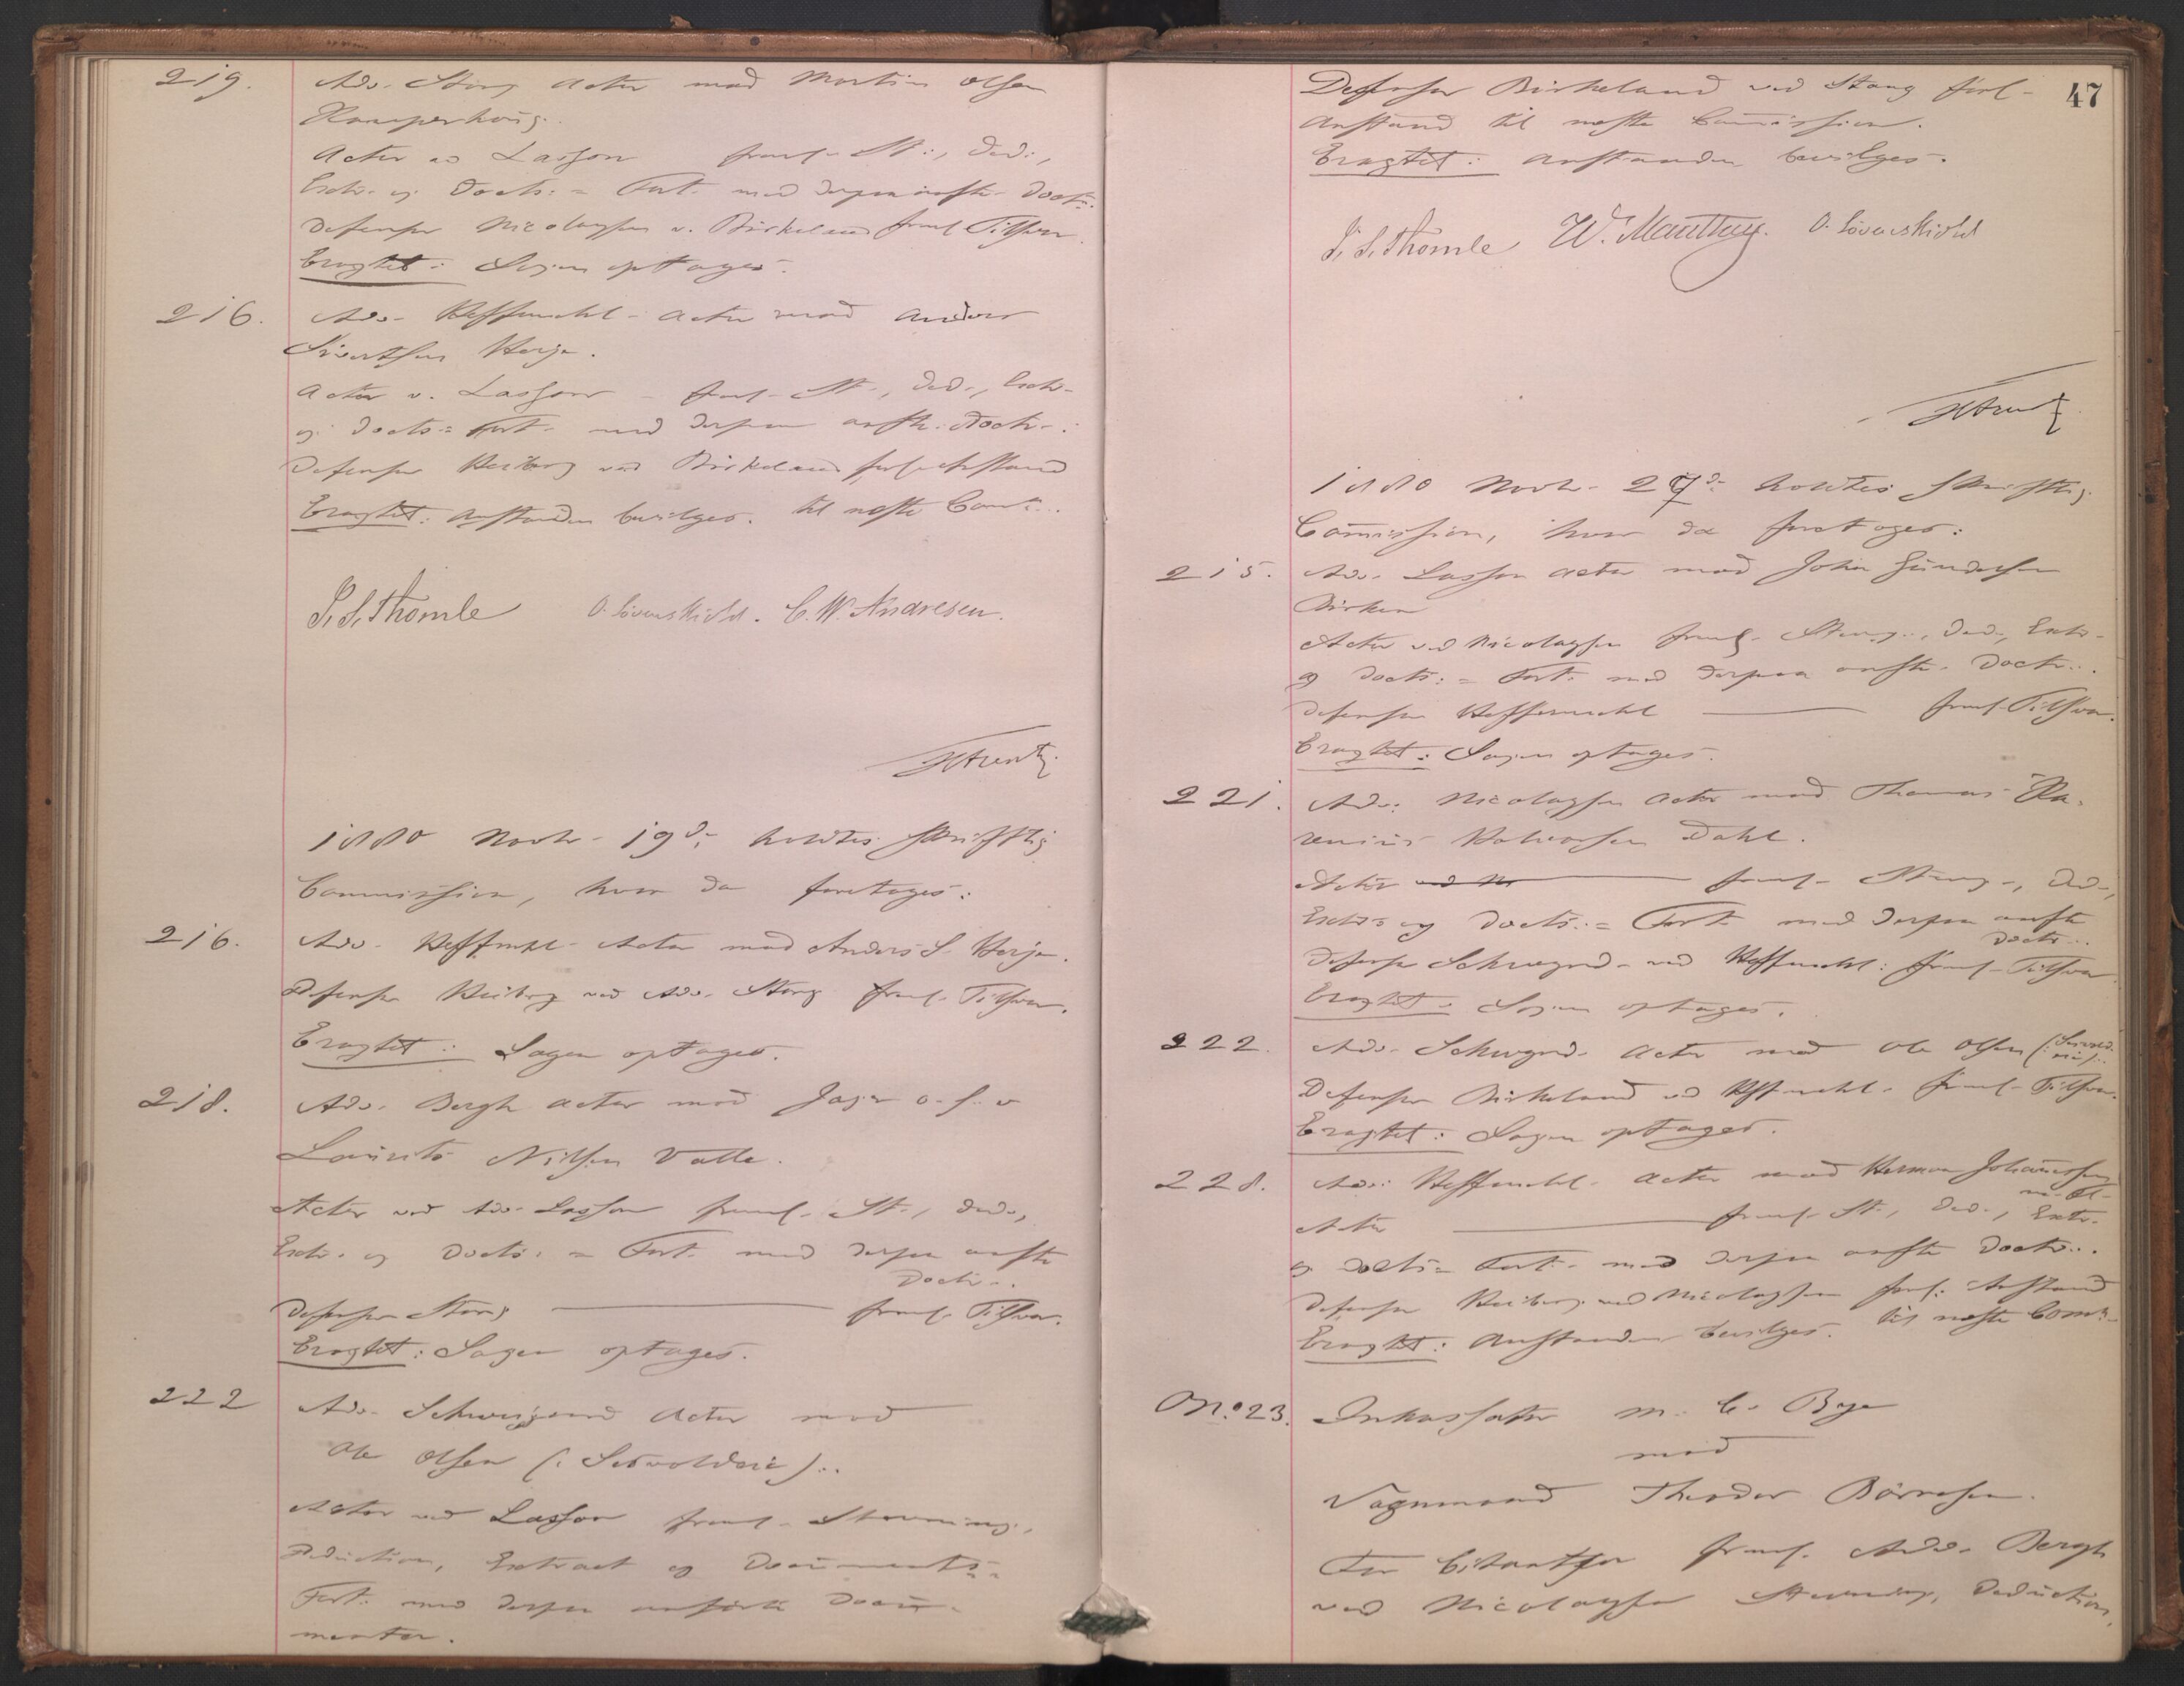 219. Adv. Stang Actor mod Martin Olsen
Kamperhoug.
Actor v. Lasson freml. St., Ded.,
Extr. og Docts.= Fort. med derpaa anførte Doctr.
Defensor Nicolaysen v. Birkeland freml. Tilsvar.
Eragtet: Sagen optages.
216. Adv. Heffermehl Actor mod Anders
Sivertsen Herje.
Actor v. Lasson freml. St., Ded., Extr.
og Docts.= Fort. med derpaa anførte Doctr.
Defensor Heiberg ved Birkeland forl. Anstand
Eragtet: Anstanden bevilges. til næste Comm.
P. S. Thomle O. Løvenskiold. C. W. Andresen.
1880 Novbr. 19de holdtes skriftlig
Commission, hvor da foretoges:
216. Adv. Heffermehl Actor mod Anders S. Herje.
Defensor Heiberg ved Adv. Stang freml. Tilsvar.
Eragtet: Sagen optages.
218. Adv. Bergh Actor mod Jager o. s. v
Laurits Nilsen Valle.
Actor ved Adv. Lasson freml. St., Ded.,
Extr. og Docts.= Fort. med derpaa anførte
Doctr.
Defensor Stang freml. Tilsvar.
Eragtet: Sagen optages.
222 Adv. Schweigaard Actor mod
Ole Olsen
Actor ved Lasson freml. Stævning,
Deduction, Extract og Documents=
Fort. med derpaa anførte Docu=
menter.
47
Defensor Birkeland ved Stang forl.
Anstand til næste Commission.
Eragtet: Anstanden bevilges.
P. S. Thomle W. Manthey. O. Løvenskiold
1880 Novbr. 27de holdtes skriftlig
Commission, hvor da foretoges:
215. Adv. Lasson Actor mod Johan Gundersen
Birken
Actor ved Nicolaysen freml. Stævng., Ded., Extr.
og Docts.= Fort. med derpaa anførte Doctr.
Defensor Heffermehl freml. Tilsvar.
Eragtet: Sagen optages.
221. Adv. Nicolaysen Actor mod Thomas
Halvorsen Dahl.
Actor freml. Stævng., Ded.,
Extr. og Docts.= Fort. med derpaa anførte
Doctr.
Defensor Schweigrd. ved Heffermehl: freml. Tilsvar
Eragtet: Sagen optages.
222. Adv. Schweigrd. Actor mod Ole Olsen
Defensor Birkeland ved Heffermehl. freml. Tilsvar.
Eragtet: Sagen optages.
228. Adv. Heffermehl. Actor mod Herman Johannessen
m. fl.
Actor freml. St., Ded., Extr.
og Docts.= Fort. med derpaa anførte Doctr.
Defensor Heiberg ved Nicolaysen forl. Anstand
Eragtet: Anstanden bevilges. til næste Comm.
No. 23. Inkassator M. C. Bye
mod
Vognmand Theodor Børresen.
For Citantsen freml. Adv. Bergh
ved Nicolaysen Stævning, Deduction,